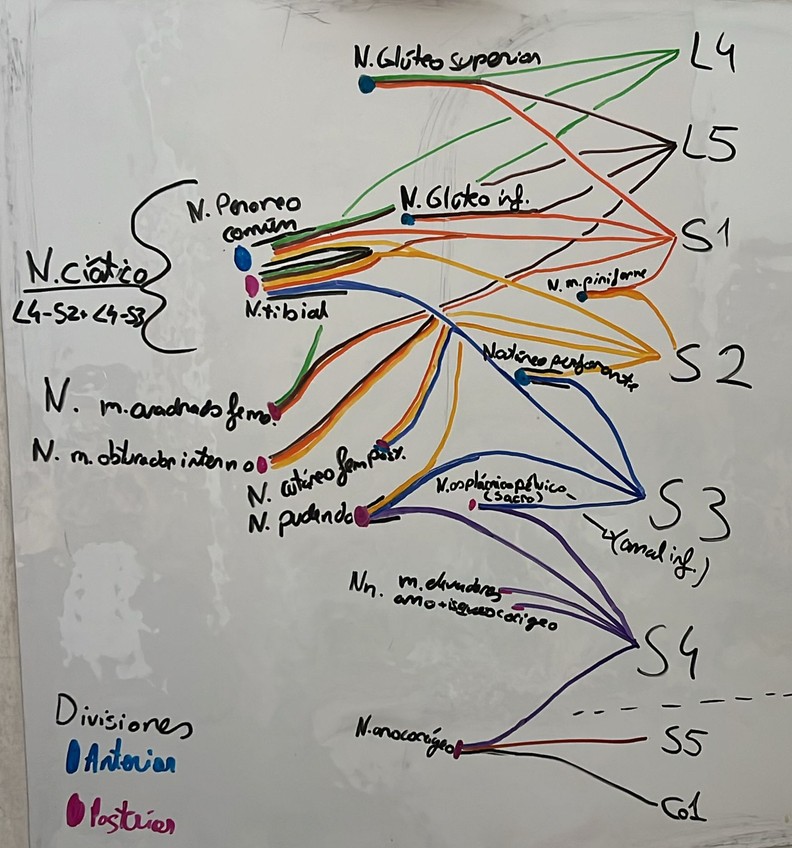 N. Glúteo superior
L4
L5
N. Peroneo
común
N. Glúteo inf.
S1
N. ciático
L4-S2+ L4-S3
N. tibial
N. m. piriforme
S2
N. cutáneo perforante
N. m. cuadrado femo.
N. m. obturador interno
N. cutáneo fem post.
N. pudendo
N. esplácnico pélvico
(sacro)
S3
(anal inf.)
Nn. m. elevadores
ano + isqueococcígeo
S4
N. anococcígeo
S5
Co1
Divisiones
Anterior
Posterior